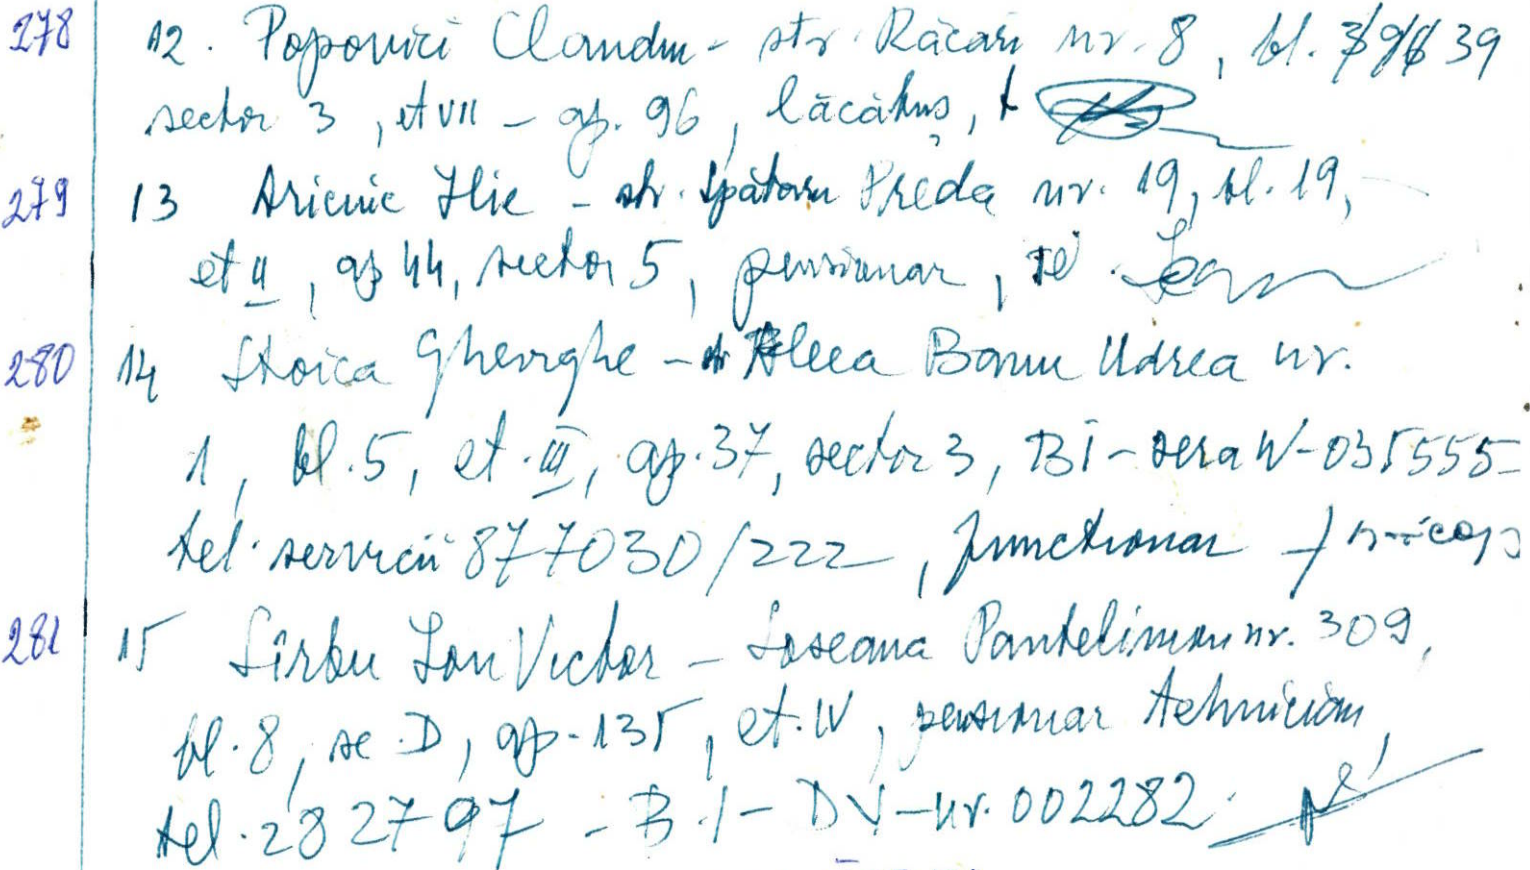 278 12. Popovici Claudiu - str. Răcari nr. 8, bl. 39
sector 3, et VII - ap. 96, lăcătuș, t
279 13 Aricinic Ilie - str. Spătaru Preda nr. 19, bl. 19,
et II, ap 44, sector 5, pensionar,
280 14 Stoica Gheorghe - Aleea Banu Udrea nr.
1, bl. 5, et. III, ap. 37, sector 3, BI - seria W - 035555 -
tel. servicii 877030/222, functionar
281 15 Sîrbu Ion Victor - Soseaua Pantelimon nr. 309,
bl. 8, sc. D, ap. 135, et. IV, pensionar tehnician,
tel. 282797 - B.I - DV - nr. 002282.